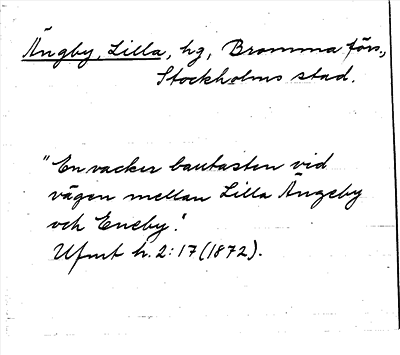 Ängby, Lilla, hg, Bromma förs.,
Stockholms stad.
"En vacker bautasten vid
vägen mellan Lilla Ängeby
och Eneby".
Ufmt h. 2: 17 (1872).